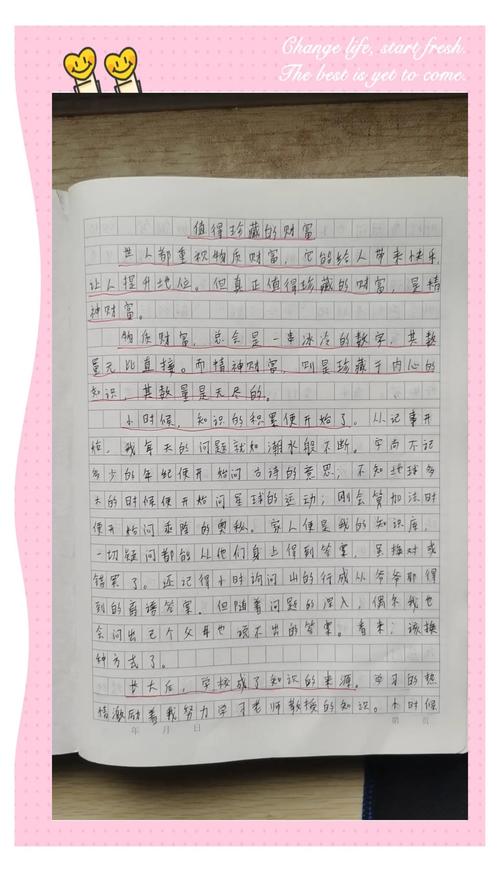 Change life, start fresh.
The best is yet to come.
值得珍藏的财富
世人都重视物质财富，它能给人带来快乐，
让人提升地位。但真正值得珍藏的财富，是精
神财富。
物质财富，总会是一串冰冷的数字，其数
量无比直接。而精神财富，则是珍藏于内心的
知识，其数量是无尽的。
小时候，知识的积累便开始了。从记事开
始，我每天的问题就如潮水般不断。字尚不记
多少的年纪便开始问古诗的意思；不知地球多
大的时候便开始问星球的运动；刚会算加法时
便开始问乘除的奥秘。家人便是我的知识库，
一切疑问都能从他们身上得到答案，
错累了。还记得小时询问出的行成从爷爷那得
到的答案。但随着问题的深入，偶尔我也
会问出己个父母也说不出的答案。看来，该换
种方式了。
长大后，学校成了知识的来源。学习的热
情激励着我努力学习老师教授的知识。小时候
年 月 日 第 页